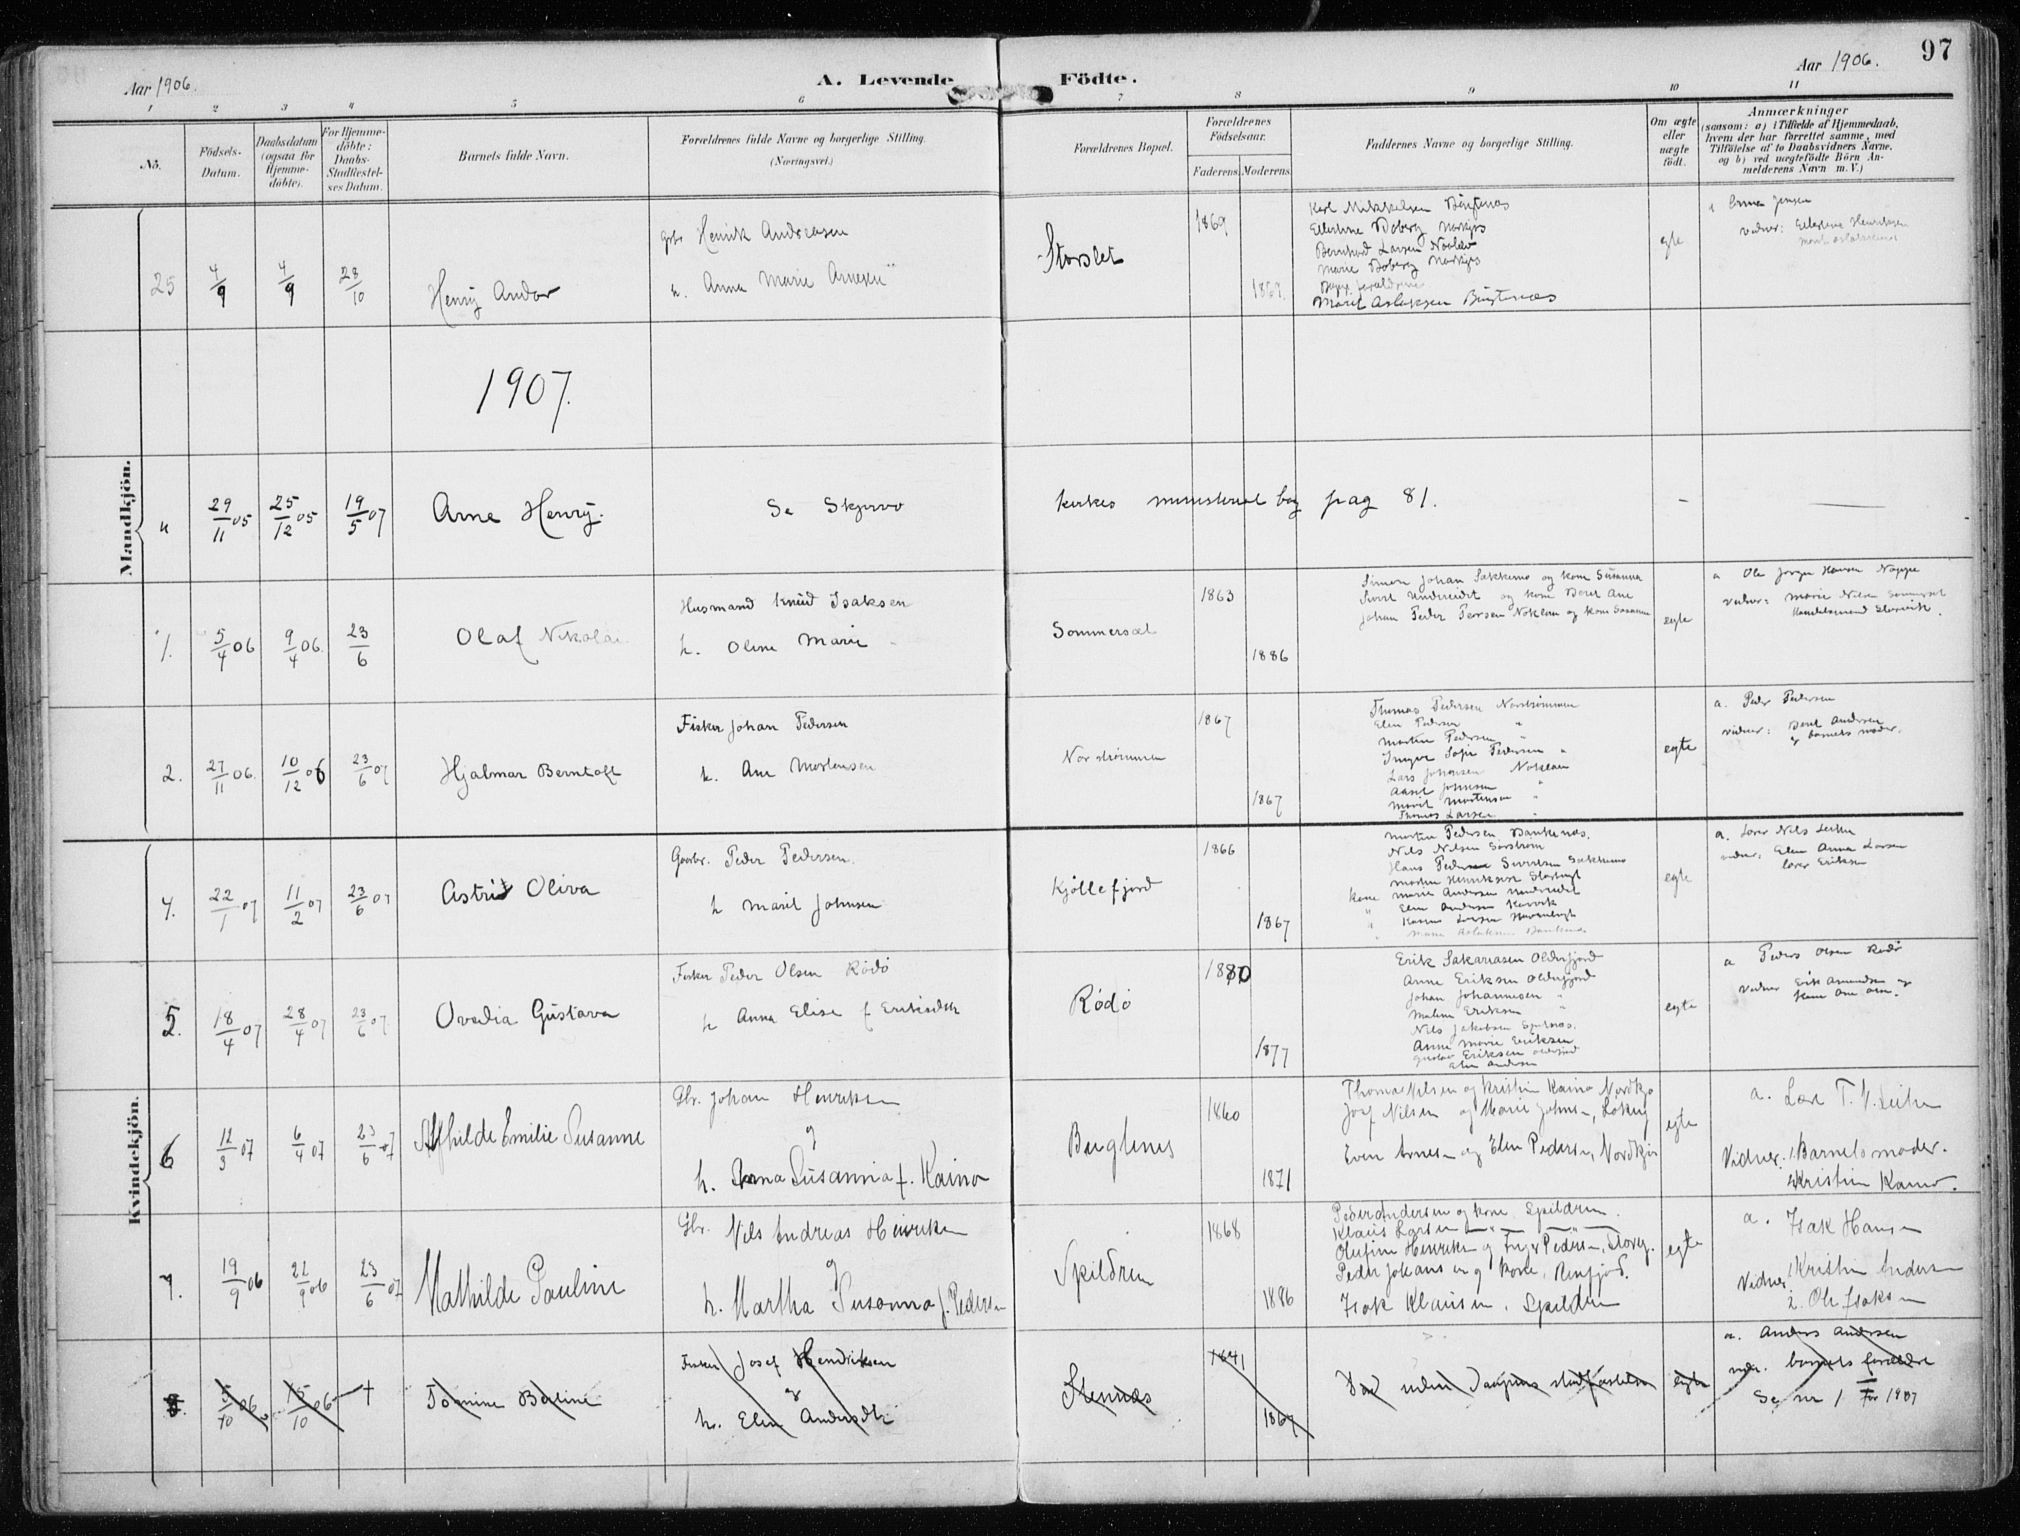 97
Aar 1906.
A. Levende Födte.
Aar 1906.
1 2 3 4 5 6 7 8 9 10 11
No.
Födsels-
Datum.
Daabsdatum
(ogsaa for
Hjemme-
döbte).
For Hjemme-
döbte:
Daabs-
Stadfæstel-
ses Datum.
Barnets fulde Navn.
Forældrenes fulde Navne og borgerlige Stilling.
(Næringsvei.)
Forældrenes Bopæl.
Forældrenes
Födselsaar.
Faderens. Moderens.
Faddernes Navne og borgerlige Stilling.
Om ægte
eller
uægte
födt.
Anmærkninger
(saasom: a) i Tilfælde af Hjemmedaab,
hvem der har forrettet samme, med
Tilföielse af to Daabsvidners Navne,
og b) ved uægtefödte Börn An-
melderens Navn m. V.)
Mandkjön.
25 4/9 4/9 23/10
Henry Andor
Gbr. Henrik Andreasen
h. Anna Marie Arnesen
Storslet
1869
1869
Karl Mikkelsen Bugtenes
Ellertine Boberg
Bernhard Larsen
Marie Boberg
Marit Aslaksen Bugtenes
egte
1907.
29/11 05 25/12 05 19/5 07
Arne Henry.
Se Skjervø
kirkes ministerial bog pag 81.
1. 5/4 06 9/4 06. 23/6
Olaf Nikolai
Husmand Knud Isaksen
h. Oline Marie
Sommersæt
1863
1886
Simon Johan Sakkemo og kone Susanna
Sivert Undereidet og kone Beret Ane
Johan Peder Persen Noklan og kone Susanna
egte
a Ole Jørgen Hansen
vidner: Marie Nilsen Sommerset
Handelsmand
2. 27/11 06. 10/12 06 23/6 07
Hjalmar Berntoft
Fisker Johan Pedersen
h. Ane Mortensen
Norstrømmen
1867
1867
Thomas Pedersen Norstrømmen
Elen Pedersen "
Morten Pedersen "
Inger Sofie Pedersen "
Lars Johnsen Noklan
Johnsen "
Marit Mortensen "
Thomas Larsen "
egte
a. Peder Pedersen
vidner: Beret Andersen
og barnets moder.
Kvindekjön.
4. 22/1 07 11/2 07 23/6 07
Astrid Oliva
Gaarbr. Peder Pedersen.
h Marit Johnsen
Kjøllefjord
1866
1867
Morten Pedersen Bankenæs.
Nils Nilsen Sørstrøm
Hans Pedersen Sakkemo
Morten Henriksen Storbugt
kone Marie Andersen Undereidet
" Elen Andersen Karvik
" Larsen
" Marie Aslaksen Bankenæs
egte
a. Lærer Nils
vidner: Elen Anna Larsen
lærer Eriksen
5. 18/4 07 28/4 07 23/6 07
Ovedia Gustava
Fisker Peder Olsen Rødø
h Anna Elise f Eriksdtr
Rødø
1880
1877
Erik Sakariasen Olderfjord
Anne Eriksen Olderfjord
Johan Johannesen "
Malene Eriksen "
Nils Jakobsen
Anne Marie Eriksen
Gustav Eriksen Olderfjord
Elen Andersen
egte
a Peder Olsen Rødø
vidner Erik Amundsen og
kone
6 12/3 07 6/4 07 23/6 07
Alfhilde Emilie Susanne
Gbr. Johan Henriksen
og
h. Anna Susanna f. Kaino
Bugtenes
1860
1871
Thomas Nilsen og Kristin Kaino Nordkjo
Josef Nilsen og Marie Johns.
Even Arnesen og Elen Pedersen, Nordkjo
egte
a. Lær T.
Vidner. 1. Barnets moder.
2. Kristin Kaino.
7. 19/9 06 22/9 06 23/6 07
Mathilde Pauline
Gbr. Nils Andreas Henriksen
og
h. Martha Susanna f. Pedersen
Spildren
1868
1886
Peder Andersen og kone, Spildren.
Klaus Larsen " "
Olufine Henriksen og Inger Pedersen, Storeg.
Peder Johansen og kone, Renfjord.
Isak Klausen, Spildren
egte
a. Isak Hansen
Vidner: 1. Kristen Andersen
2. Ole Isaksen
8. 5/10 06 15/10 06 +
Tomine Berline
Fisker Josef Hendriksen
og
h. Elen Andersdtr
Stennæs
1841
1867
Død uden daapens stadfæstelse
egte
a. Anders Andersen
vidn. barnets forældre
Se nr 1 for 1907